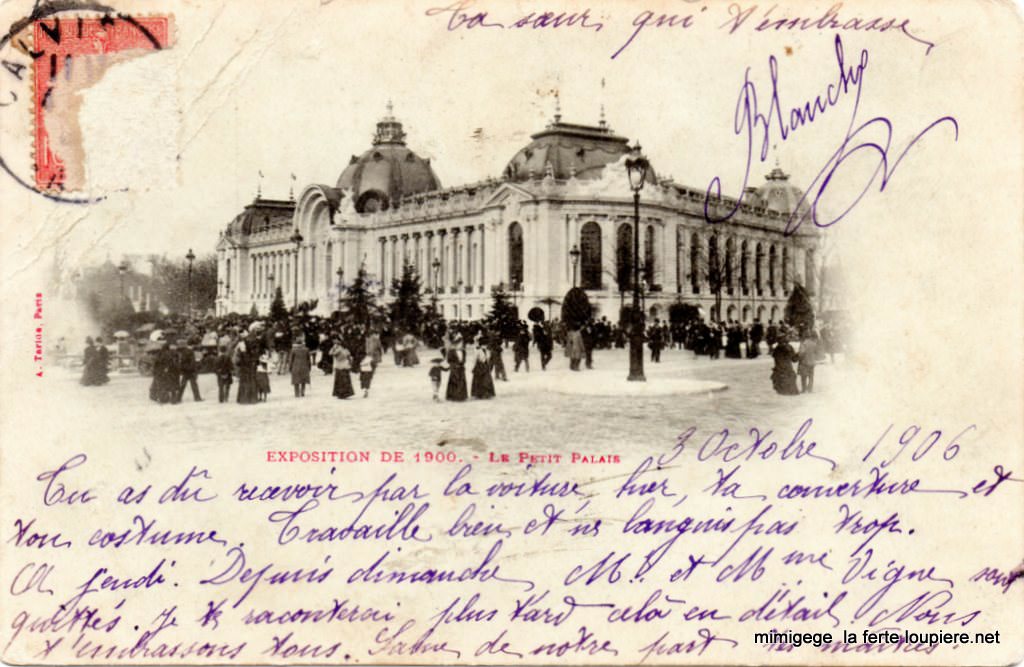 Ta sœur qui t'embrasse
Blanche
CALVI
A. Tarida, Paris
EXPOSITION DE 1900. - LE PETIT PALAIS
3 Octobre 1906
Tu as dû recevoir par la voiture, hier, ta couverture et
ton costume. Travaille bien et ne languis pas trop.
A jeudi. Depuis dimanche, Mr. et Mme Vigne sont
quittés. Je te raconterai plus tard celà en détail. Nous
t'embrassons tous. Salue de notre part tes maîtres.
mimigege la ferte.loupiere.net